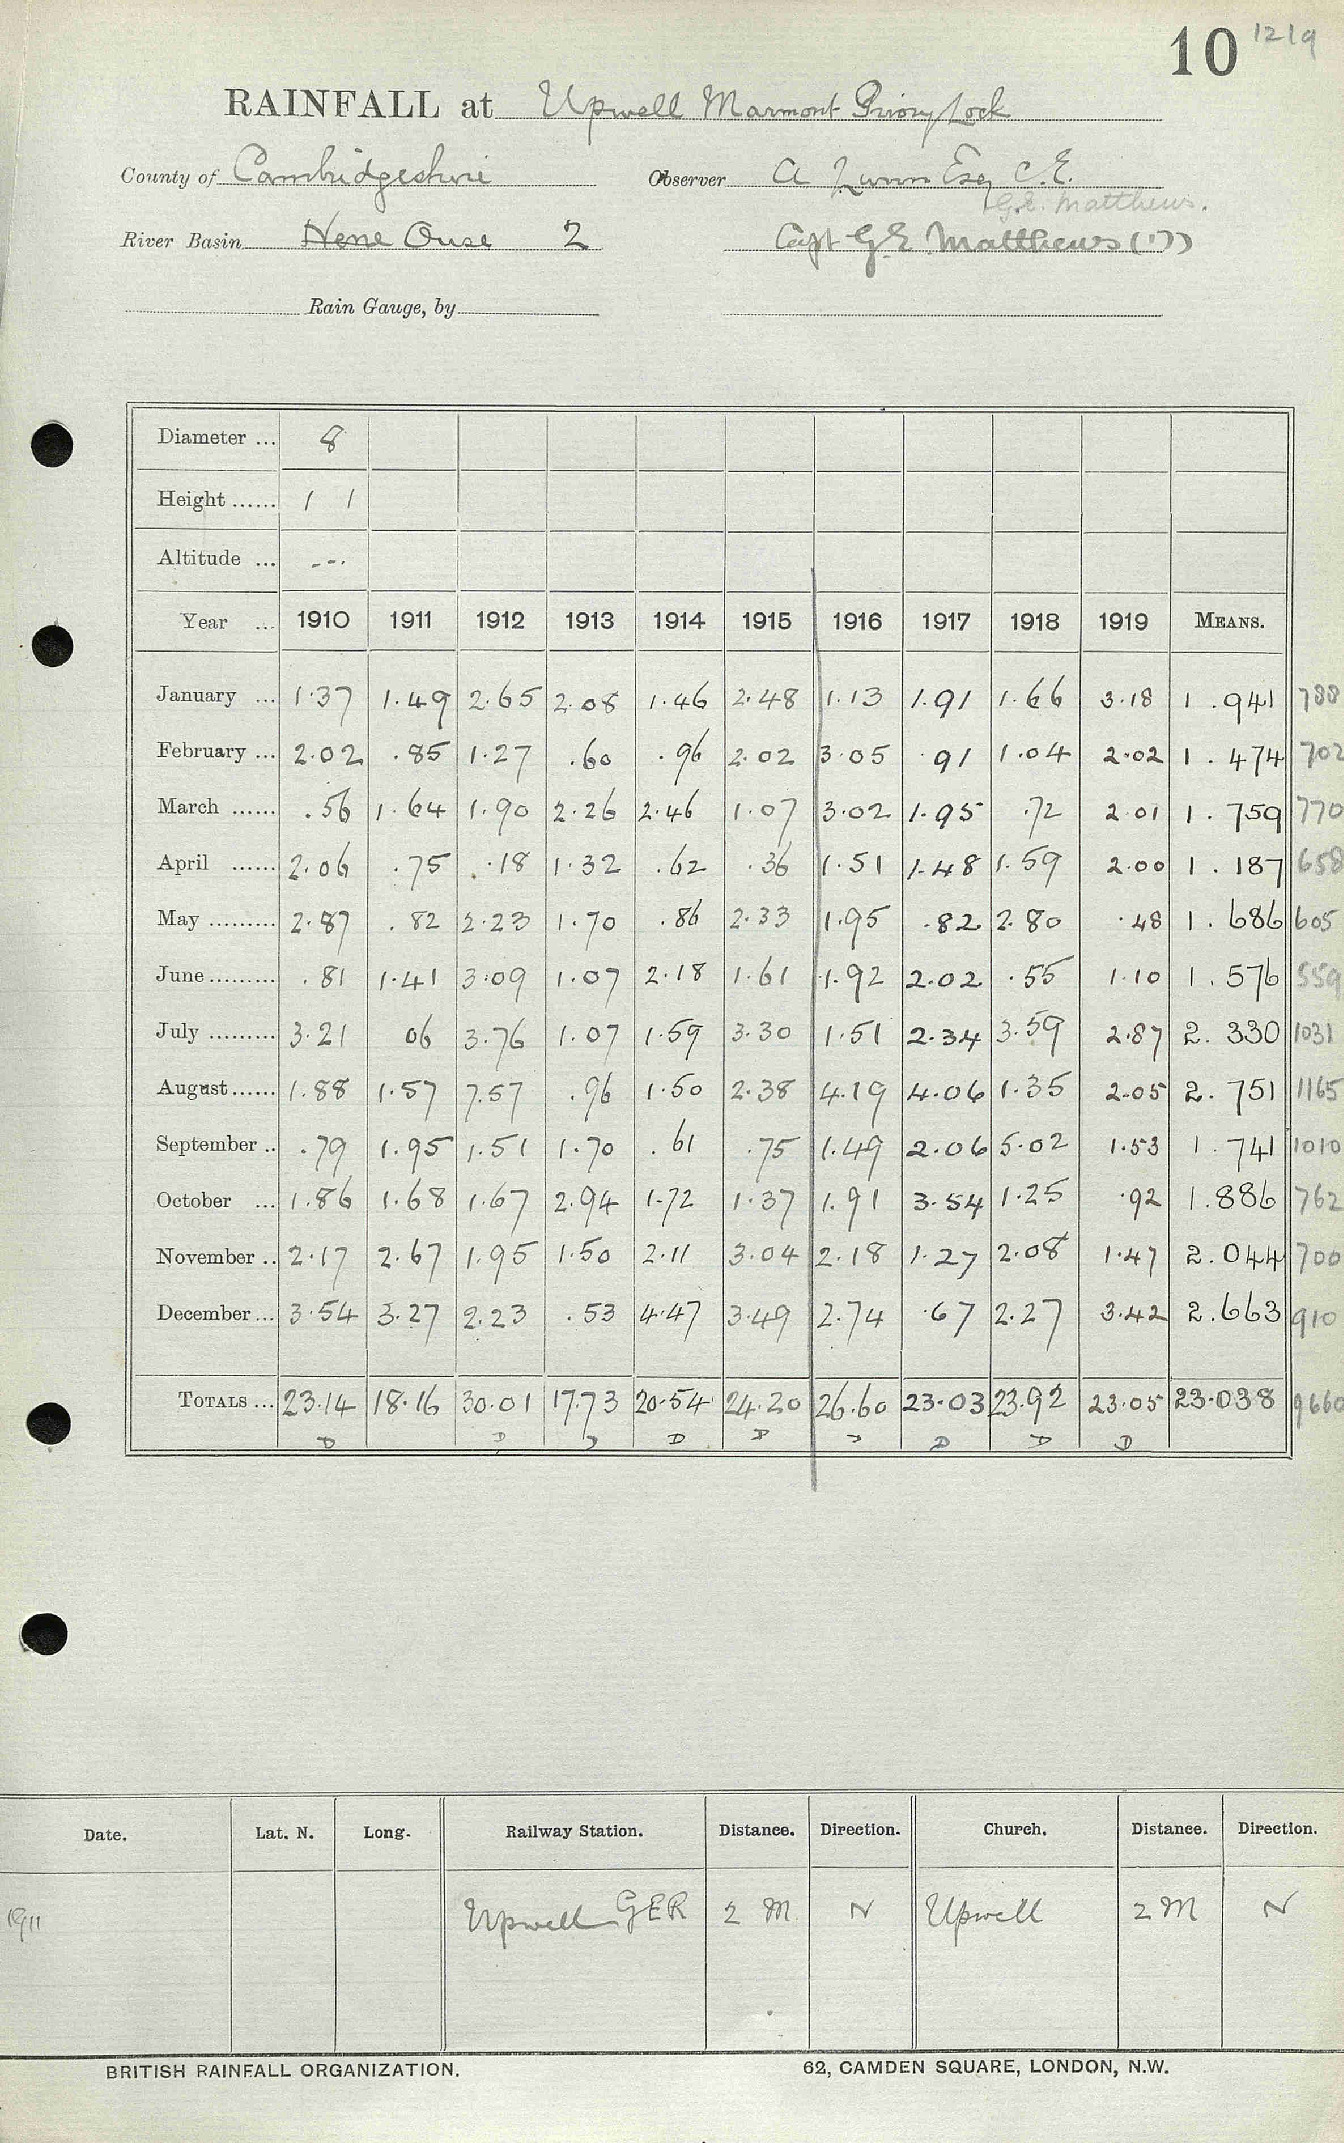 10 1219
RAINFALL at Upwell Marmont Priory Lock
County of Cambridgeshire Observer A Esq C.E.
G.E. Matthews.
River Basin Nene Ouse 2 Capt G.E. Matthews ('17)
Rain Gauge, by
Diameter ... 8
Height ...... 1 1
Altitude ... ---
Year ... 1910 1911 1912 1913 1914 1915 1916 1917 1918 1919 MEANS.
January ... 1.37 1.49 2.65 2.08 1.46 2.48 1.13 1.91 1.66 3.18 1.941 788
February ... 2.02 .85 1.27 .60 .96 2.02 3.05 .91 1.04 2.02 1.474 702
March ...... .56 1.64 1.90 2.26 2.46 1.07 3.02 1.95 .72 2.01 1.759 770
April ...... 2.06 .75 .18 1.32 .62 .36 1.51 1.48 1.59 2.00 1.187 658
May ......... 2.87 .82 2.23 1.70 .86 2.33 1.95 .82 2.80 .48 1.686 605
June ......... .81 1.41 3.09 1.07 2.18 1.61 1.92 2.02 .55 1.10 1.576 559
July ......... 3.21 06 3.76 1.07 1.59 3.30 1.51 2.34 3.59 2.87 2.330 1031
August ...... 1.88 1.57 7.57 .96 1.50 2.38 4.19 4.06 1.35 2.05 2.751 1165
September .. .79 1.95 1.51 1.70 .61 .75 1.49 2.06 5.02 1.53 1.741 1010
October ... 1.86 1.68 1.67 2.94 1.72 1.37 1.91 3.54 1.25 .92 1.886 762
November .. 2.17 2.67 1.95 1.50 2.11 3.04 2.18 1.27 2.08 1.47 2.044 700
December ... 3.54 3.27 2.23 .53 4.47 3.49 2.74 .67 2.27 3.42 2.663 910
TOTALS ... 23.14 18.16 30.01 17.73 20.54 24.20 26.60 23.03 23.92 23.05 23.038 9660
D D D D D D D D D
Date. Lat. N. Long. Railway Station. Distance. Direction. Church. Distance. Direction.
1911 Upwell GER 2 M N Upwell 2 M N
BRITISH RAINFALL ORGANIZATION. 62, CAMDEN SQUARE, LONDON, N.W.